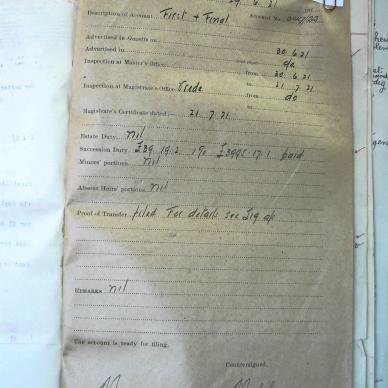 29. 6. 21
Description of Account First + Final Account No.
Advertised in Gazette on
Advertised in 30. 6. 21
Inspection at Master's Office do
from 30. 6. 21
to 21. 7. 21
Inspection at Magistrate's Office from do
to
Magistrate's Certificate dated 21. 7. 21
Estate Duty nil
Succession Duty £39. 19. 2 1% £3995. 17. 1 paid
Minors' portions nil
Absent Heirs' portions nil
Proof of Transfer filed For details see £19 a/c
REMARKS nil
The account is ready for filing.
Countersigned.